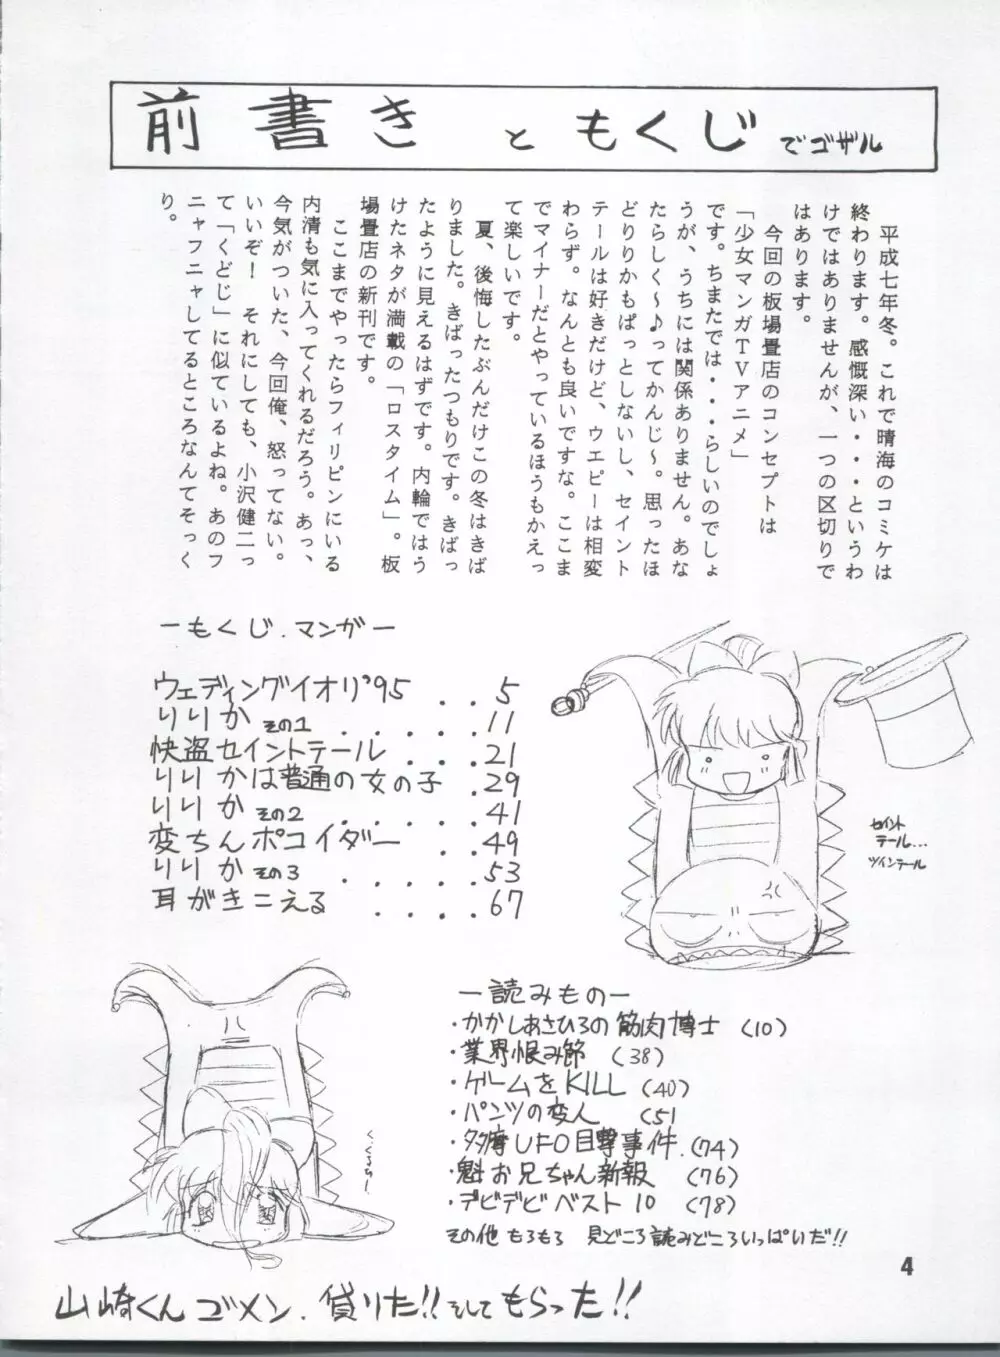 前書きともくじでゴザル
平成七年冬。これで晴海のコミケは
終わります。感慨深い・・・というわ
けではありませんが、一つの区切りで
はあります。
今回の板場畳店のコンセプトは
「少女マンガTVアニメ」
です。ちまたでは・・・らしいのでしょ
うが、うちには関係ありません。あな
たらしく～♪ってかんじ～。思ったほ
どりりかもぱっとしないし、セイント
テールは好きだけど、ウエピーは相変
わらず。なんとも良いですな。ここま
でマイナーだとやっているほうもかえっ
て楽しいです。
夏、後悔したぶんだけこの冬はきば
りました。きばったつもりです。きばっ
たように見えるはずです。内輪ではう
けたネタが満載の「ロスタイム」。板
場畳店の新刊です。
ここまでやったらフィリピンにいる
内清も気に入ってくれるだろう。あっ、
今気がついた、今回俺、怒ってない。
いいぞ！ それにしても、小沢健二っ
て「くどじ」に似ているよね。あのフ
ニャフニャしてるところなんてそっく
り。
ーもくじ.マンガー
ウェディングイオリ'95 . . . 5
りりか その1 . . . . . 11
快盗セイントテール . . . 21
りりかは普通の女の子 . 29
りりか その2 . . . . . 41
変ちんポコイダー . . 49
りりか その3 . . . . . 53
耳がきこえる . . . . 67
セイント
テール...
ツインテール
ー読みものー
・かかしあさひろの筋肉博士 (10)
・業界恨み節 (38)
・ゲームをKILL (40)
・パンツの変人 (51
・多摩UFO目撃事件.(74)
・魁お兄ちゃん新報 (76)
・デビデビベスト10 (78)
その他もろもろ 見どころ読みどころいっぱいだ!!
く、くるちー
4
山崎くんゴメン.借りた!!そしてもらった!!